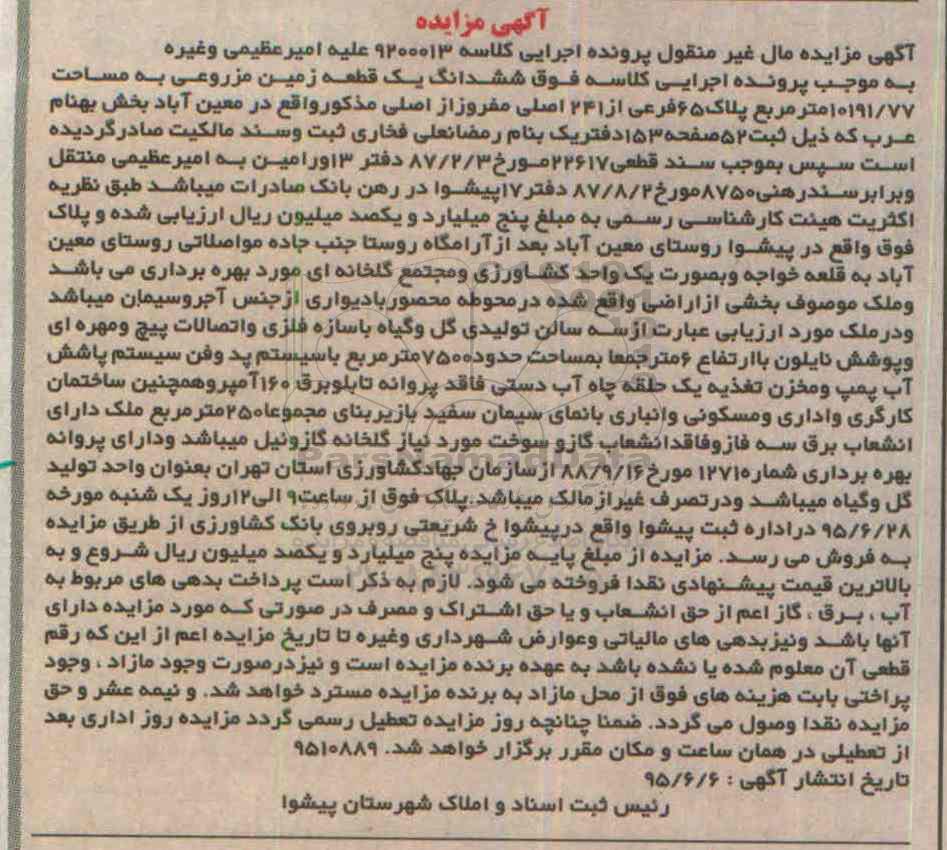 آگهی مزایده
آگهی مزایده مال غیر منقول پرونده اجرایی کلاسه ۹۲۰۰۰۱۳ علیه امیرعظیمی وغیره
به موجب پرونده اجرایی کلاسه فوق ششدانگ یک قطعه زمین مزروعی به مساحت
۱۰۱۹۱/۷۷مترمربع پلاک۶۵فرعی از۲۴۱ اصلی مفروزاز اصلی مذکورواقع در معین آباد بخش بهنام
عرب که ذیل ثبت۵۲صفحه۱۵۳دفتریک بنام رمضانعلی فخاری ثبت وسند مالکیت صادرگردیده
است سپس بموجب سند قطعی۲۲۶۱۷مورخ۸۷/۲/۳ دفتر ۱۳ورامین به امیرعظیمی منتقل
وبرابرسندرهنی۸۷۵۰مورخ۸۷/۸/۲ دفتر۱۷پیشوا در رهن بانک صادرات میباشد طبق نظریه
اکثریت هیئت کارشناسی رسمی به مبلغ پنج میلیارد و یکصد میلیون ریال ارزیابی شده و پلاک
فوق واقع در پیشوا روستای معین آباد بعد ازآرامگاه روستا جنب جاده مواصلاتی روستای معین
آباد به قلعه خواجه وبصورت یک واحد کشاورزی ومجتمع گلخانه ای مورد بهره برداری می باشد
وملک موصوف بخشی ازاراضی واقع شده درمحوطه محصوربادیواری ازجنس آجروسیمان میباشد
ودرملک مورد ارزیابی عبارت ازسه سالن تولیدی گل وگیاه باسازه فلزی واتصالات پیچ ومهره ای
وپوشش نایلون باارتفاع ۶مترجمعا بمساحت حدود۷۵۰۰مترمربع باسیستم پد وفن سیستم پاشش
آب پمپ ومخزن تغذیه یک حلقه چاه آب دستی فاقد پروانه تابلوبرق ۱۶۰آمپروهمچنین ساختمان
کارگری واداری ومسکونی وانباری بانمای سیمان سفید بازیربنای مجموعا۲۵۰مترمربع ملک دارای
انشعاب برق سه فازوفاقدانشعاب گازو سوخت مورد نیاز گلخانه گازوئیل میباشد ودارای پروانه
بهره برداری شماره۱۲۷۱۰ مورخ۸۸/۹/۱۶ ازسازمان جهادکشاورزی استان تهران بعنوان واحد تولید
گل وگیاه میباشد ودرتصرف غیرازمالک میباشد.پلاک فوق از ساعت۹ الی۱۲روز یک شنبه مورخه
۹۵/۶/۲۸ دراداره ثبت پیشوا واقع درپیشوا خ شریعتی روبروی بانک کشاورزی از طریق مزایده
به فروش می رسد. مزایده از مبلغ پایه مزایده پنج میلیارد و یکصد میلیون ریال شروع و به
بالاترین قیمت پیشنهادی نقدا فروخته می شود. لازم به ذکر است پرداخت بدهی های مربوط به
آب ، برق ، گاز اعم از حق انشعاب و یا حق اشتراک و مصرف در صورتی که مورد مزایده دارای
آنها باشد ونیزبدهی های مالیاتی وعوارض شهرداری وغیره تا تاریخ مزایده اعم از این که رقم
قطعی آن معلوم شده یا نشده باشد به عهده برنده مزایده است و نیزدرصورت وجود مازاد ، وجود
پراختی بابت هزینه های فوق از محل مازاد به برنده مزایده مسترد خواهد شد. و نیمه عشر و حق
مزایده نقدا وصول می گردد. ضمنا چنانچه روز مزایده تعطیل رسمی گردد مزایده روز اداری بعد
از تعطیلی در همان ساعت و مکان مقرر برگزار خواهد شد. ۹۵۱۰۸۸۹
تاریخ انتشار آگهی : ۹۵/۶/۶
رئیس ثبت اسناد و املاک شهرستان پیشوا
ParsNamadData